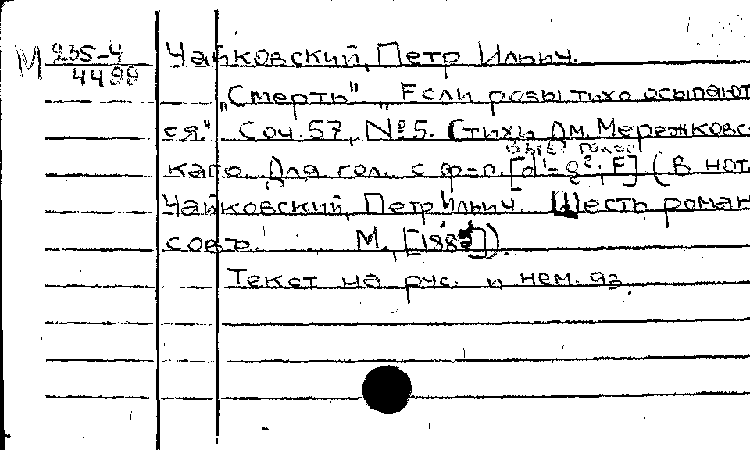 М 235-4
4499
Чайковский, Петр Ильич.
„Смерть" „Если розы тихо осыпают
ся." Соч. 57, № 5. Стихи Дм. Мережковс
каго. Для гол. с ф-п. [d'-g²; F] (В нот.
Чайковский, Петр Ильич. Шесть роман
совъ. М., [188
Текст на рус. и нем. яз.